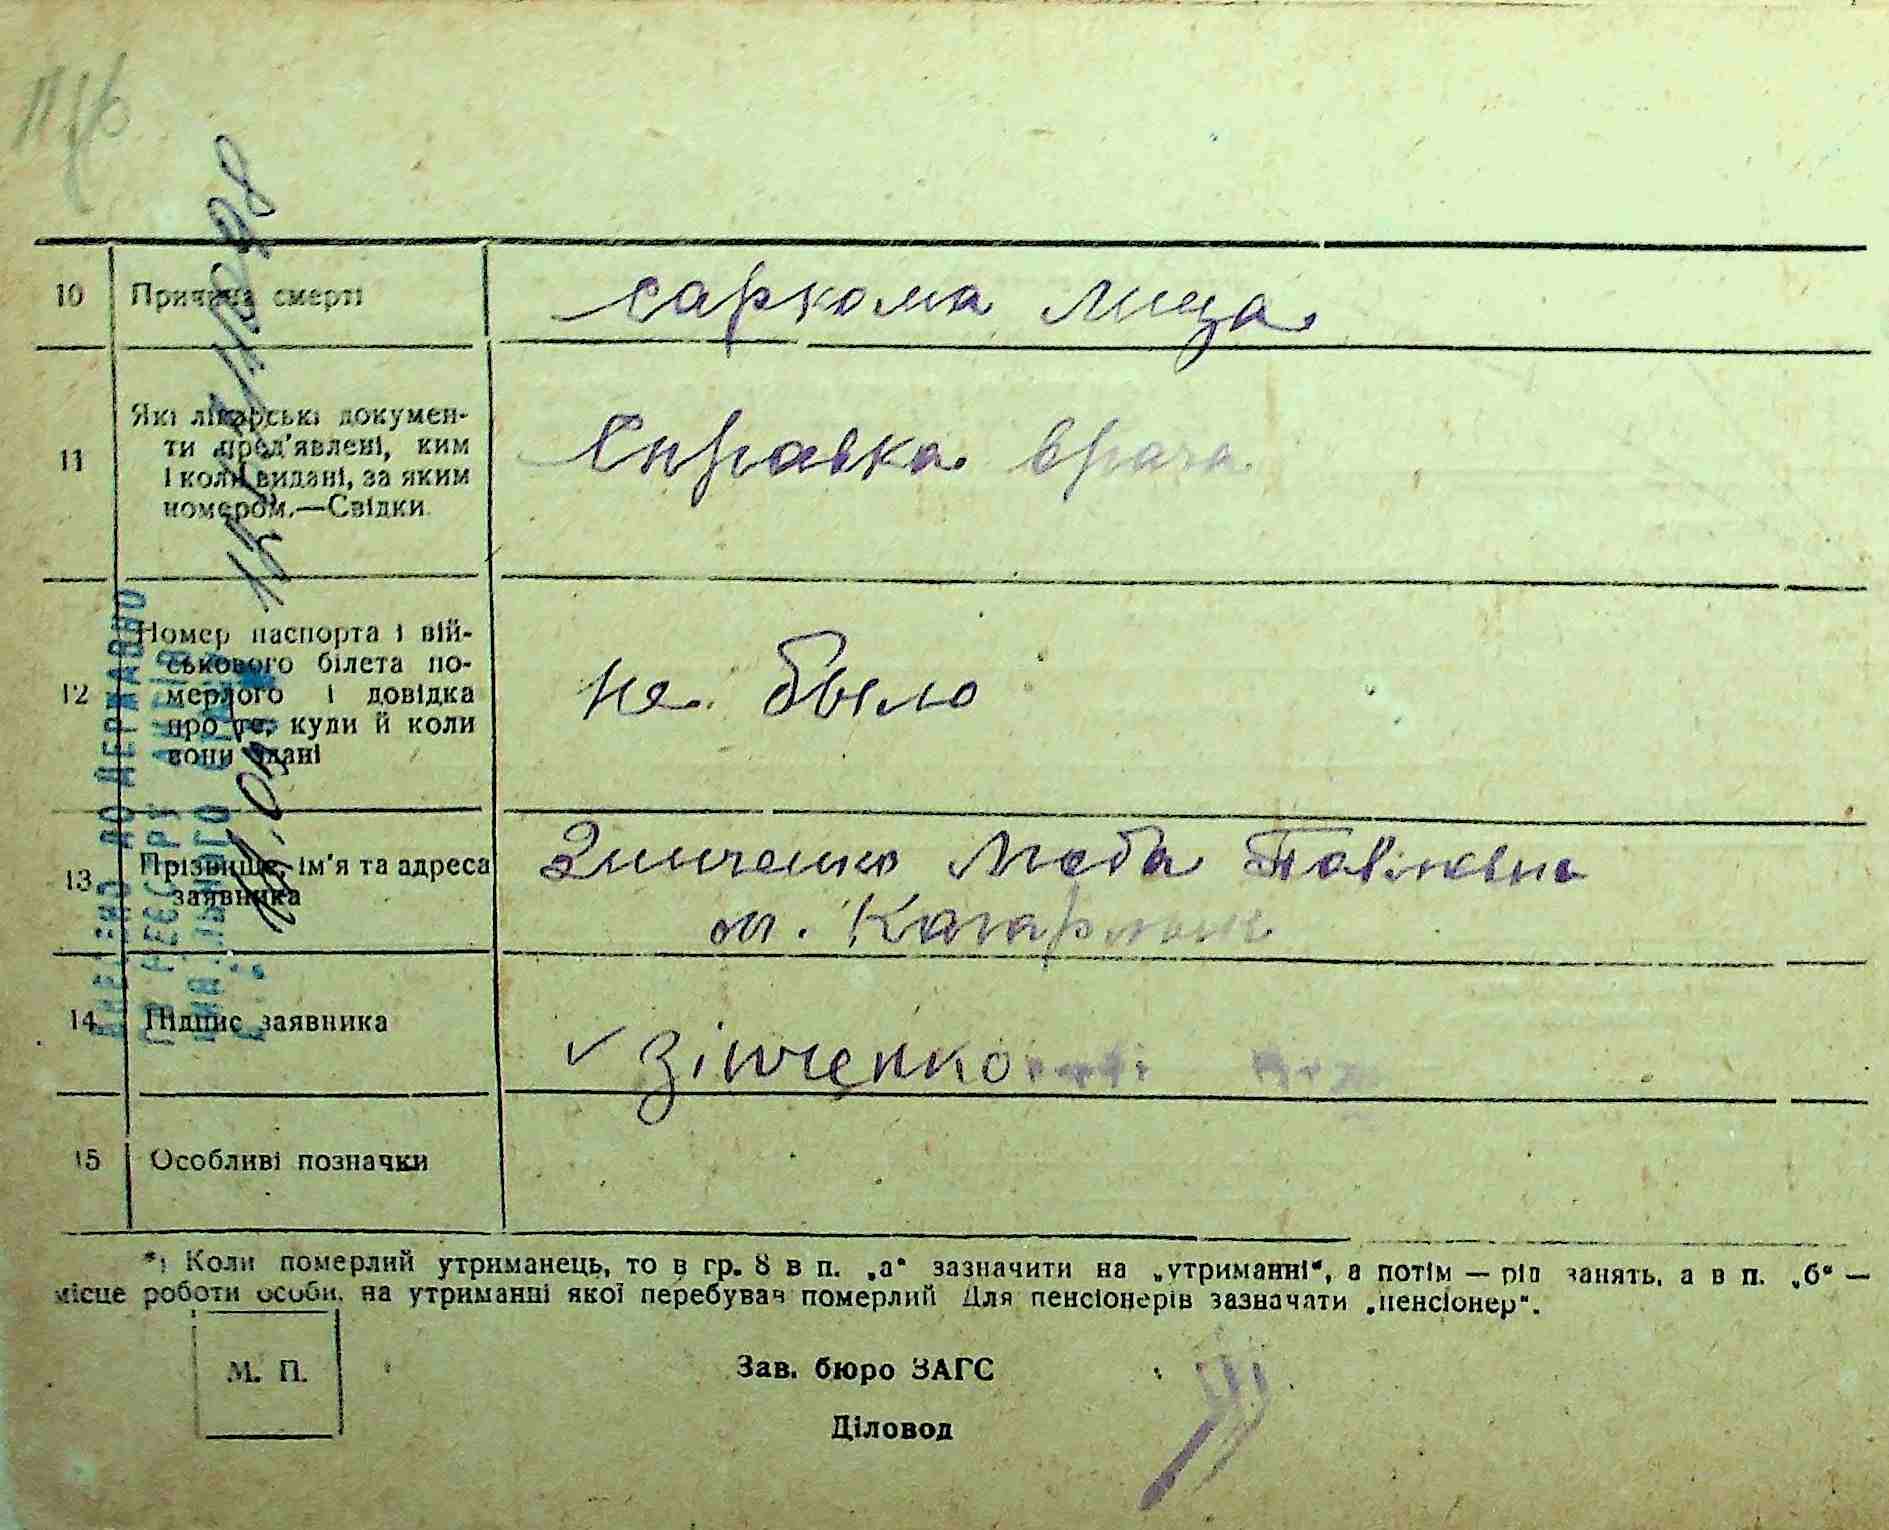 10 Причина смерті саркома лица
11 Які лікарські докумен-
ти пред'явлені, ким
і коли видані, за яким
номером.—Свідки
Справка врача
12 Номер паспорта і вій-
ськового білета по-
мерлого і довідка
про те, куди й коли
вони здані
не было
13 Прізвище, ім'я та адреса
заявника
Зинченко Люба Павловна
м. Кагарлык
14 Підпис заявника
Зінченко
15 Особливі позначки
*) Коли померлий утриманець, то в гр. 8 в п. „а" зазначити на „утриманні", а потім — рід занять, а в п. „б" —
місце роботи особи, на утриманні якої перебував померлий Для пенсіонерів зазначати „пенсіонер".
М. П.
Зав. бюро ЗАГС
Діловод